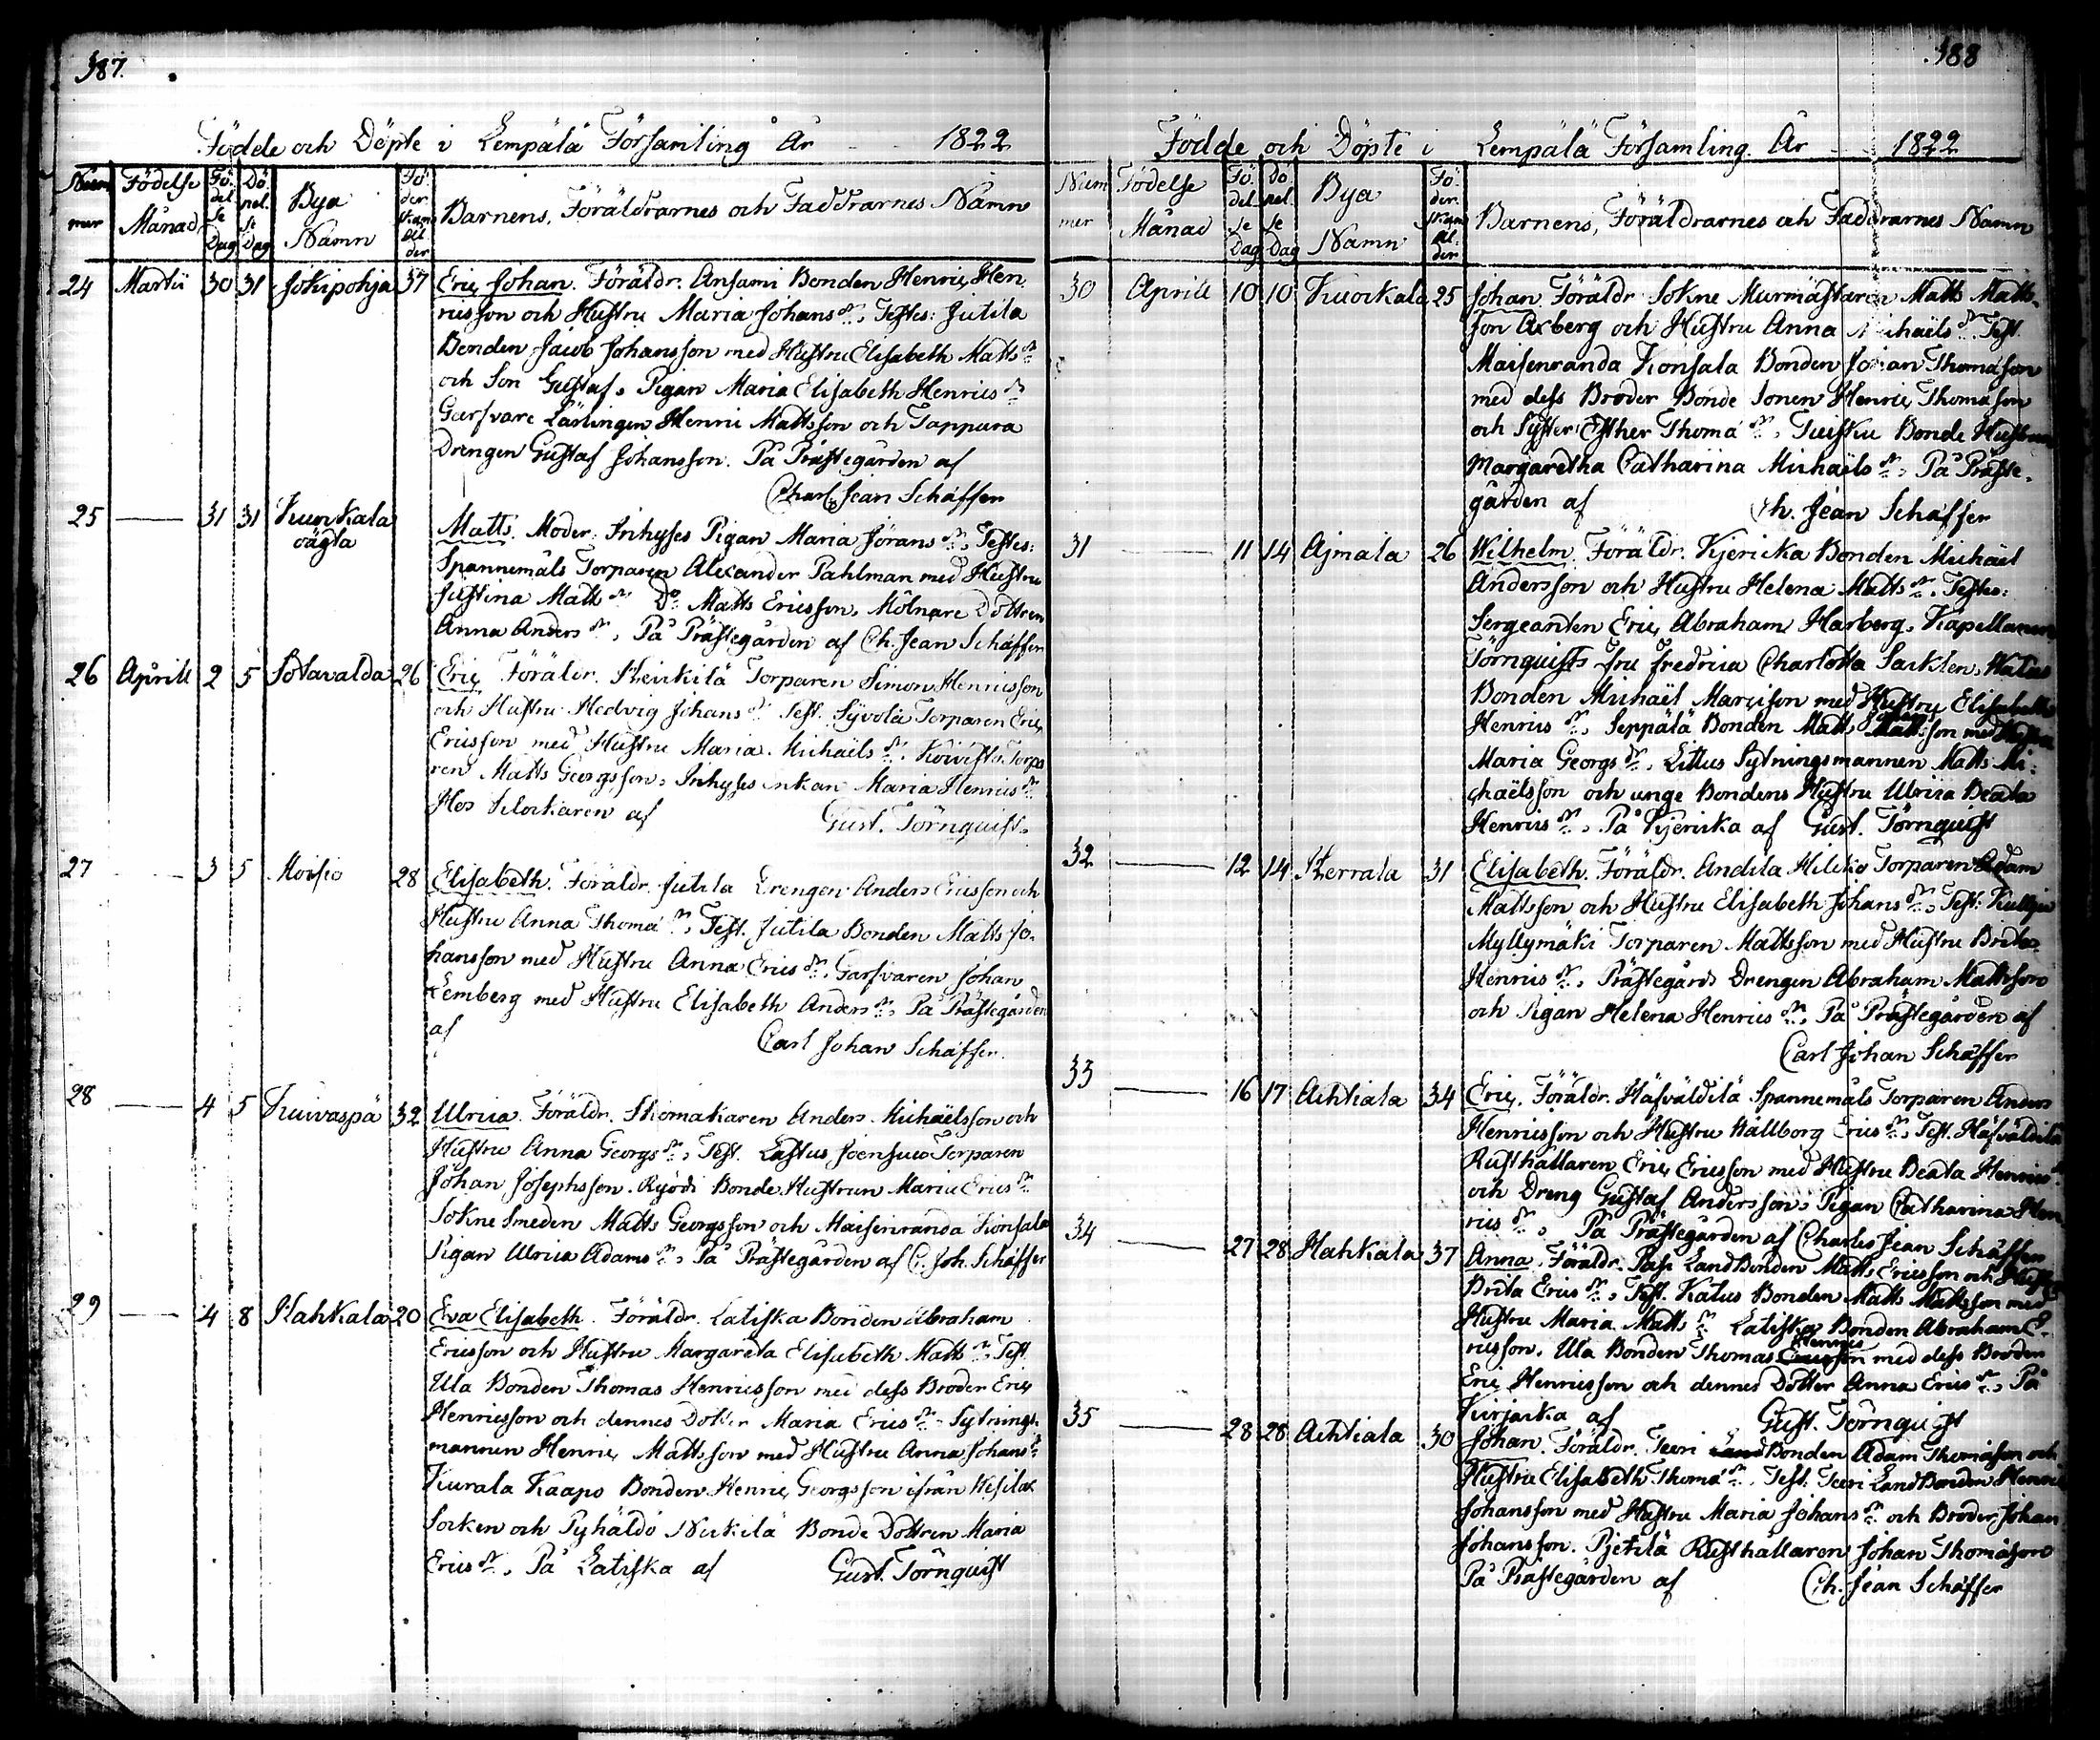 387.
Födde och Döpte i Lempälä Församling År 1822
Num mer Födelse Månad Fö del se Dag Dö pel se Dag Bya Namn Fö der skan Ål der Barnens, Föräldrarnes och Faddrarnes Namn
24 Martii 30 31 Jokipohja 37 Eric Johan. Föräldr. Ansami Bonden Henric Hen
ricsson och Hustru Maria Johans dr, Testes: Jutila
Bonden Jacob Johansson med Hustru Elisabeth Matts dr
och Son Gustaf, Pigan Maria Elisabeth Henrics dr
Garfvare Lärlingen Henric Mattsson och Tappura
Drengen Gustaf Johansson. På Prästegården af
Charl Jean Schäffer
25 — 31 31 Kuokala oägta Matts. Moder: Inhyses Pigan Maria Jörans dr, Testes:
Spannemåls Torparen Alexander Pahlman med Hustru
Justina Matts dr Do Matts Ericsson, Mölnare Dottren
Anna Anders dr, På Prästegården af Ch. Jean Schäffer
26 Aprill 2 5 Sotavalda 26 Eric Föräldr. Heickilä Torparen Simon Henricsson
och Hustru Hedvig Johans dr Test. Syvola Torparen Eric
Ericsson med Hustru Maria Michaëls dr, Koivisto Torpa
ren Matts Georgsson, Inhyses enkan Maria Henrics dr
Hos Klockaren af Gust. Törnquist.
27 — 3 5 Moisio 28 Elisabeth. Föräldr. Jutila Drengen Anders Ericsson och
Hustru Anna Thomæ dr, Test. Jutila Bonden Matts Jo-
hansson med Hustru Anna Erics dr, Garfvaren Johan
Lemberg med Hustru Elisabeth Anders dr, På Prästegården
af Carl Johan Schäffer.
28 — 4 5 Kuivaspä 32 Ulrica. Föräldr. Skomakaren Anders Michaëlsson och
Hustru Anna Georgs dr, Test. Lastus Joensuu Torparen
Johan Josephsson. Ryödi Bonde Hustrun Maria Erics dr
Sokne Smeden Matts Georgsson och Maisenranda Konsala
Pigan Ulrica Adams dr, På Prästegården af C. Joh. Schäffer
29 — 4 8 Hahkala 20 Eva Elisabeth. Föräldr. Latiska Bonden Abraham
Ericsson och Hustru Margareta Elisabeth Matts dr, Test
Ula Bonden Thomas Henricsson med dess Broder Eric
Henricsson och dennes Dotter Maria Erics dr Sytnings-
mannen Henric Mattsson med Hustru Anna Johans dr
Kurala Kaapo Bonden Henric Georgsson ifrån Wesilax
Socken och Pyhäldö Nickilä Bonde Dottren Maria
Erics dr, På Latiska af Gust. Törnquist
388
Födde och Döpte i Lempälä Församling År 1822
Num mer Födelse Månad Fö del se Dag Dö pel se Dag Bya Namn Fö der skan Ål der Barnens, Föräldrarnes och Faddrarnes Namn
30 Aprill 10 10 Kuokala 25 Johan. Föräldr. Sokne Murmästaren Matts Matts-
son Axberg och Hustru Anna Michaëls dr Test.
Maisenranda Konsala Bonden Johan Thomasson
med dess Broder Bonde Sonen Henric Thomasson
och Syster Esther Thomæ dr, Kuisku Bonde Hustrun
Margaretha Catharina Michaëls dr, På Präste-
gården af Ch. Jean Schäffer
31 — 11 14 Ajmala 26 Wilhelm. Föräldr. Kjericka Bonden Michaël
Andersson och Hustru Helena Matts dr, Testes:
Sergeanten Eric Abraham Harberg, Kapellanen
Törnquists Fru Fredrica Charlotta Sacklen, Katus
Bonden Michaël Marcisson med Hustru Elisabeth
Henrics dr, Seppälä Bonden Matts Mattsson med Hustru
Maria Georgs dr, Littus Sytningsmannen Matts Mi-
chaëlsson och unge Bondens Hustru Ulrica Beata
Henrics dr, På Kjericka af Gust. Törnquist
32 — 12 14 Herrala 31 Elisabeth. Föräldr. Andila Hilcko Torparen Adam
Mattsson och Hustru Elisabeth Johans dr, Test:
Myllymäki Torparen Mattsson med Hustru Brita
Henrics dr, Prästegårds Drengen Abraham Mattsson
och Pigan Helena Henrics dr, På Prästegården af
Carl Johan Schäffer
33 — 16 17 Achtiala 34 Eric. Föräldr. Häfväldilä Spannemåls Torparen Anders
Henricsson och Hustru Wallborg Erics dr, Test. Häfväldilä
Rusthållaren Eric Ericsson med Hustru Beata Henrics
och Dreng Gustaf Andersson, Pigan Catharina Hen
rics dr, På Prästegården af Charles Jean Schäffer
34 — 27 28 Hahkala 37 Anna. Föräldr. Pasi LandBonden Matts Ericsson och Hustru
Brita Erics dr, Test. Katus Bonden Matts Mattsson med
Hustru Maria Matts dr Latiska Bonden Abraham E-
ricsson, Ula Bonden Thomas Henrics Ericsson med dess Broder
Eric Henricsson och dennes Dotter Anna Erics dr, På
Kirjaska af Gust. Törnquist
35 — 28 28 Achtiala 30 Johan. Föräldr. Teeri Land Bonden Adam Thomasson och
Hustru Elisabeth Thomæ dr, Test: Teeri LandBonden Henric
Johansson med Hustru Maria Johans dr och Broder Johan
Johansson. Pjetilä Rusthållaren Johan Thomasson
På Prästegården af Ch. Jean Schäffer